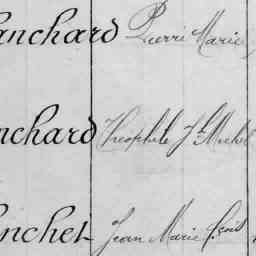 anchard Pierre Marie
nchard Théophile Jh Michel
nchet Jean Marie Frçois